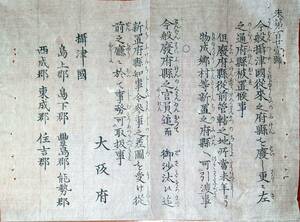 今般攝津國從來之府縣ヲ廢シ更ニ左
之通府縣被置候事
但廢府縣從前管轄之地所當未年ヨリ
物成郷村等新置之府縣ヘ可引渡事
今般廢府縣之官員追而御沙汰迄
新置府縣知事令參事之差圖ヲ受ケ從
前之廳ニ於テ事務可取扱事
大阪府
攝津國
島上郡 島下郡 豐島郡 能勢郡
西成郡 東成郡 住吉郡